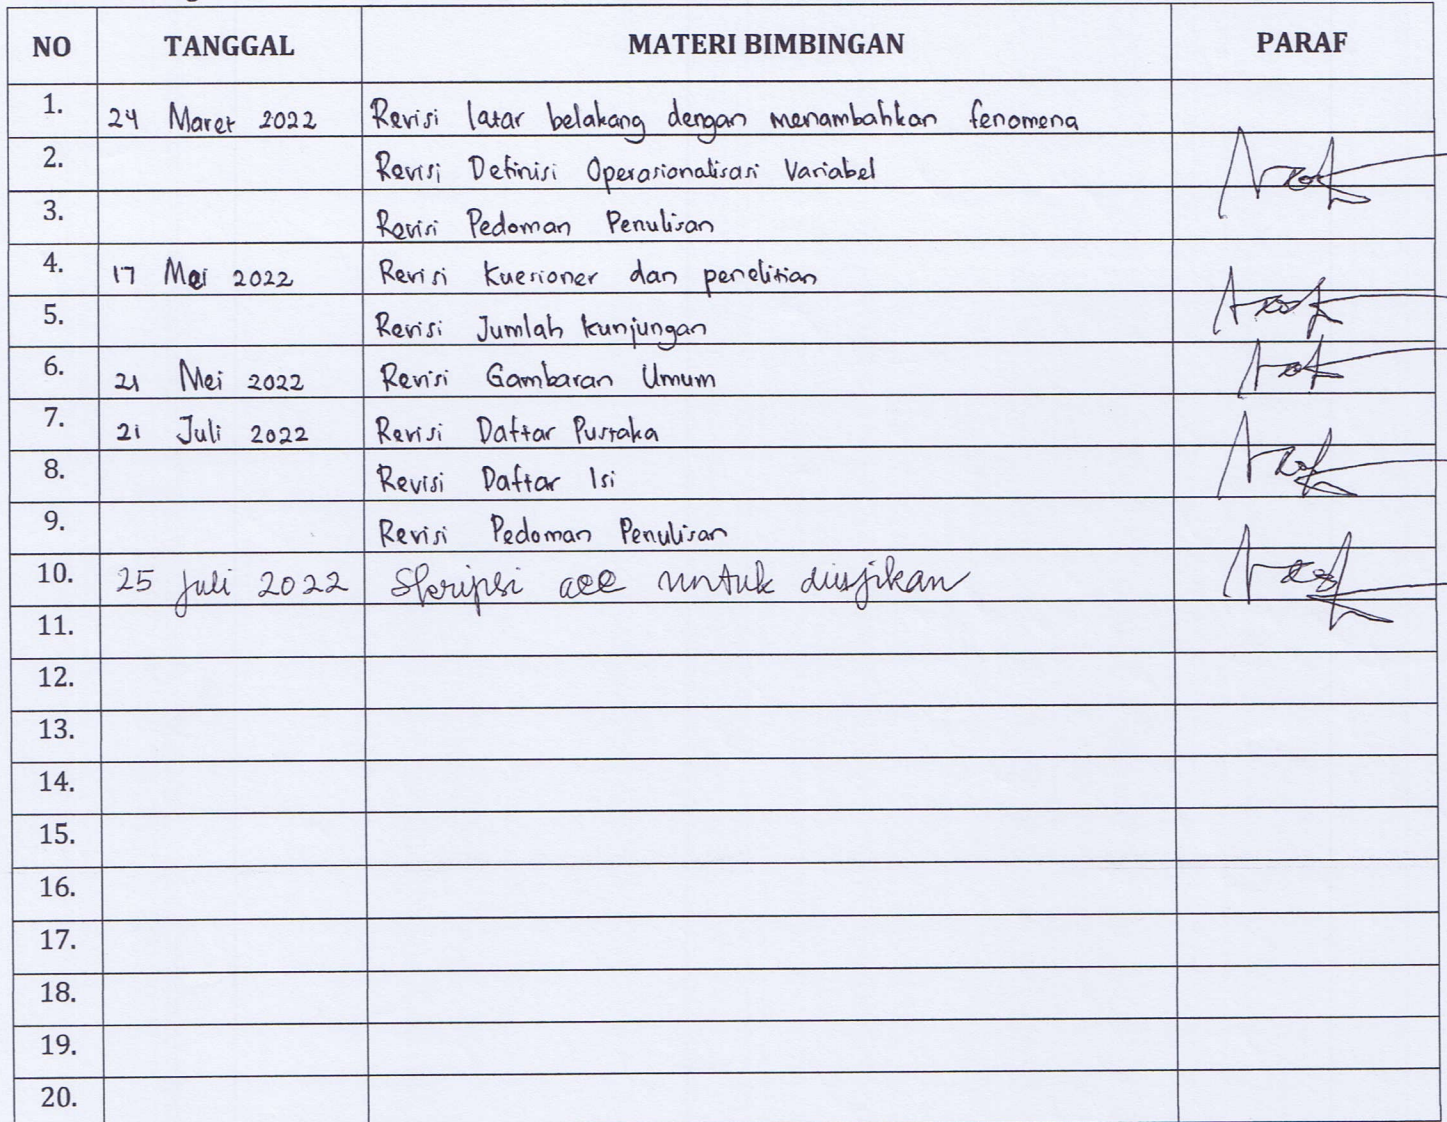 NO TANGGAL MATERI BIMBINGAN PARAF
1. 24 Maret 2022 Revisi latar belakang dengan menambahkan fenomena
2. Revisi Definisi Operasionalisasi Variabel
3. Revisi Pedoman Penulisan
4. 17 Mei 2022 Revisi Kuesioner dan penelitian
5. Revisi Jumlah kunjungan
6. 21 Mei 2022 Revisi Gambaran Umum
7. 21 Juli 2022 Revisi Daftar Pustaka
8. Revisi Daftar Isi
9. Revisi Pedoman Penulisan
10. 25 Juli 2022 Skripsi acc untuk diujikan
11.
12.
13.
14.
15.
16.
17.
18.
19.
20.